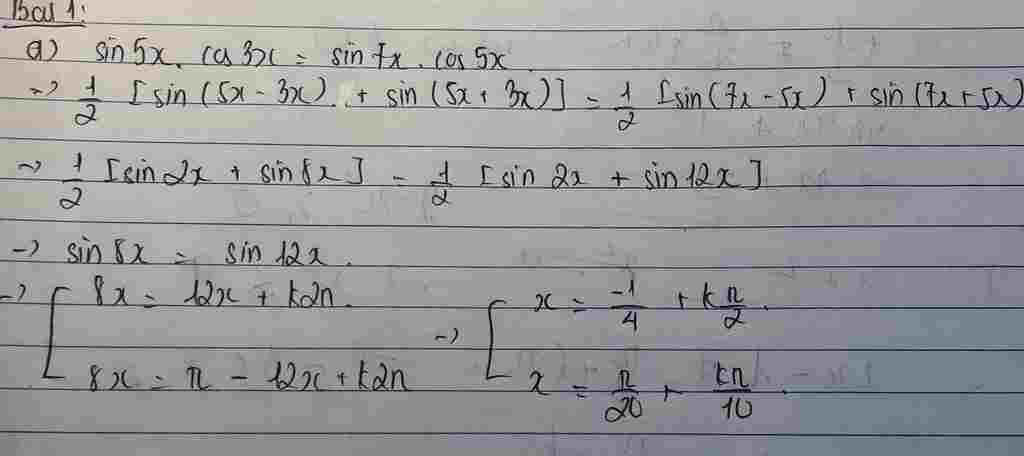 Bài 1:
a) sin 5x. cos 3x = sin 7x. cos 5x
→ 1/2 [sin (5x - 3x) + sin (5x + 3x)] = 1/2 [sin(7x - 5x) + sin(7x + 5x)
→ 1/2 [sin 2x + sin 8x] = 1/2 [sin 2x + sin 12x]
→ sin 8x = sin 12x.
→ [ 8x = 12x + k2π. → [ x = -1/4 + k π/2.
8x = π - 12x + k2π x = π/20 + kπ/10.